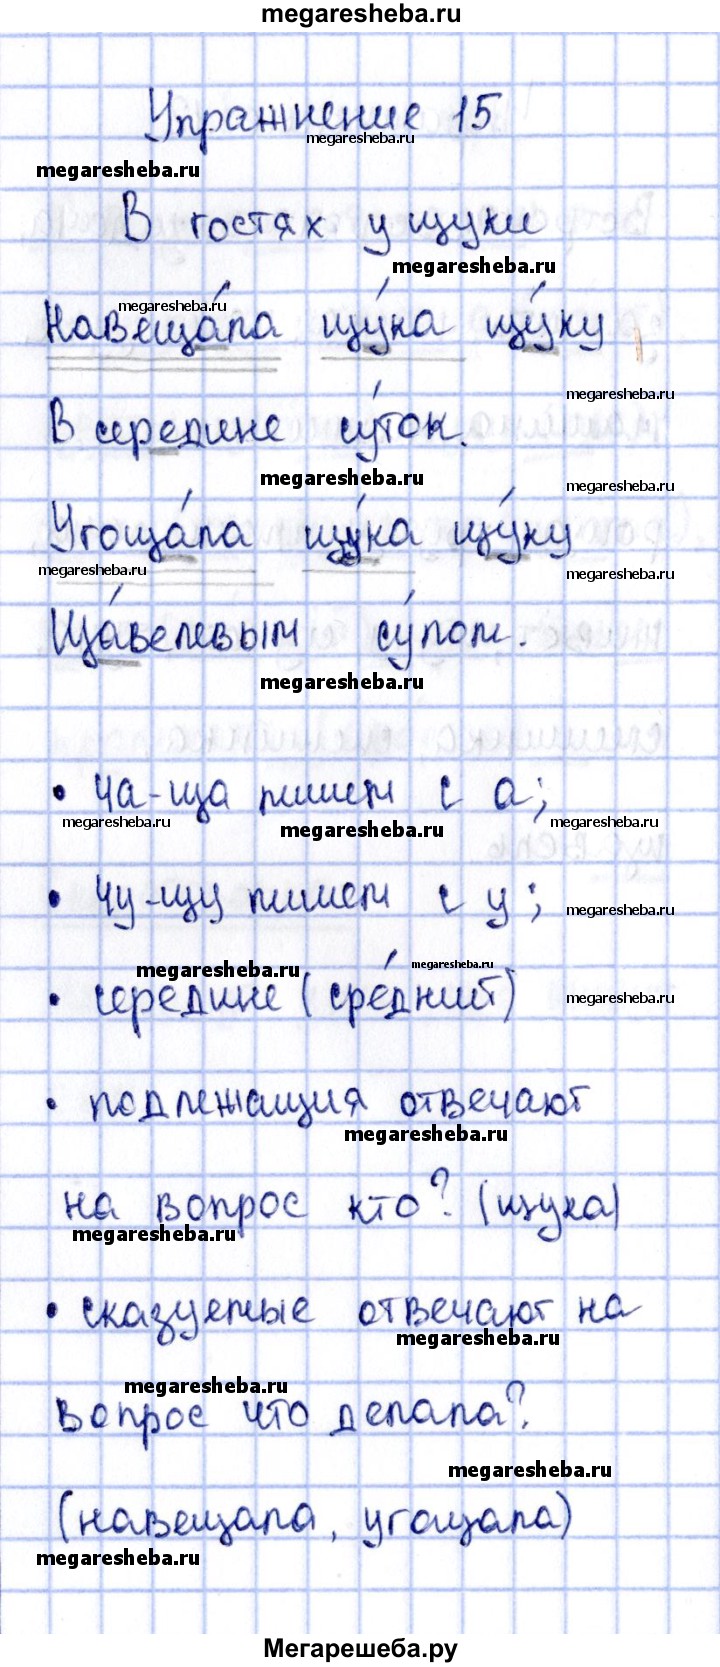 megaresheba.ru
Упражнение 15
megaresheba.ru
megaresheba.ru
В гостях у щуки
megaresheba.ru
megaresheba.ru
Навеща́ла щу́ка щу́ку
megaresheba.ru
В середине су́ток.
megaresheba.ru
megaresheba.ru
Угоща́ла щу́ка щу́ку
megaresheba.ru
megaresheba.ru
Ща́велевым су́пом.
megaresheba.ru
• ча-ща пишем с а;
megaresheba.ru
megaresheba.ru
• чу-щу пишем с у;
megaresheba.ru
megaresheba.ru
megaresheba.ru
• середине (сре́дний)
megaresheba.ru
• подлежащия отвечают
megaresheba.ru
на вопрос кто? (щука)
megaresheba.ru
• сказуемые отвечают на
megaresheba.ru
megaresheba.ru
вопрос что делала?
megaresheba.ru
(навещала, угощала)
megaresheba.ru
Мегарешеба.ру